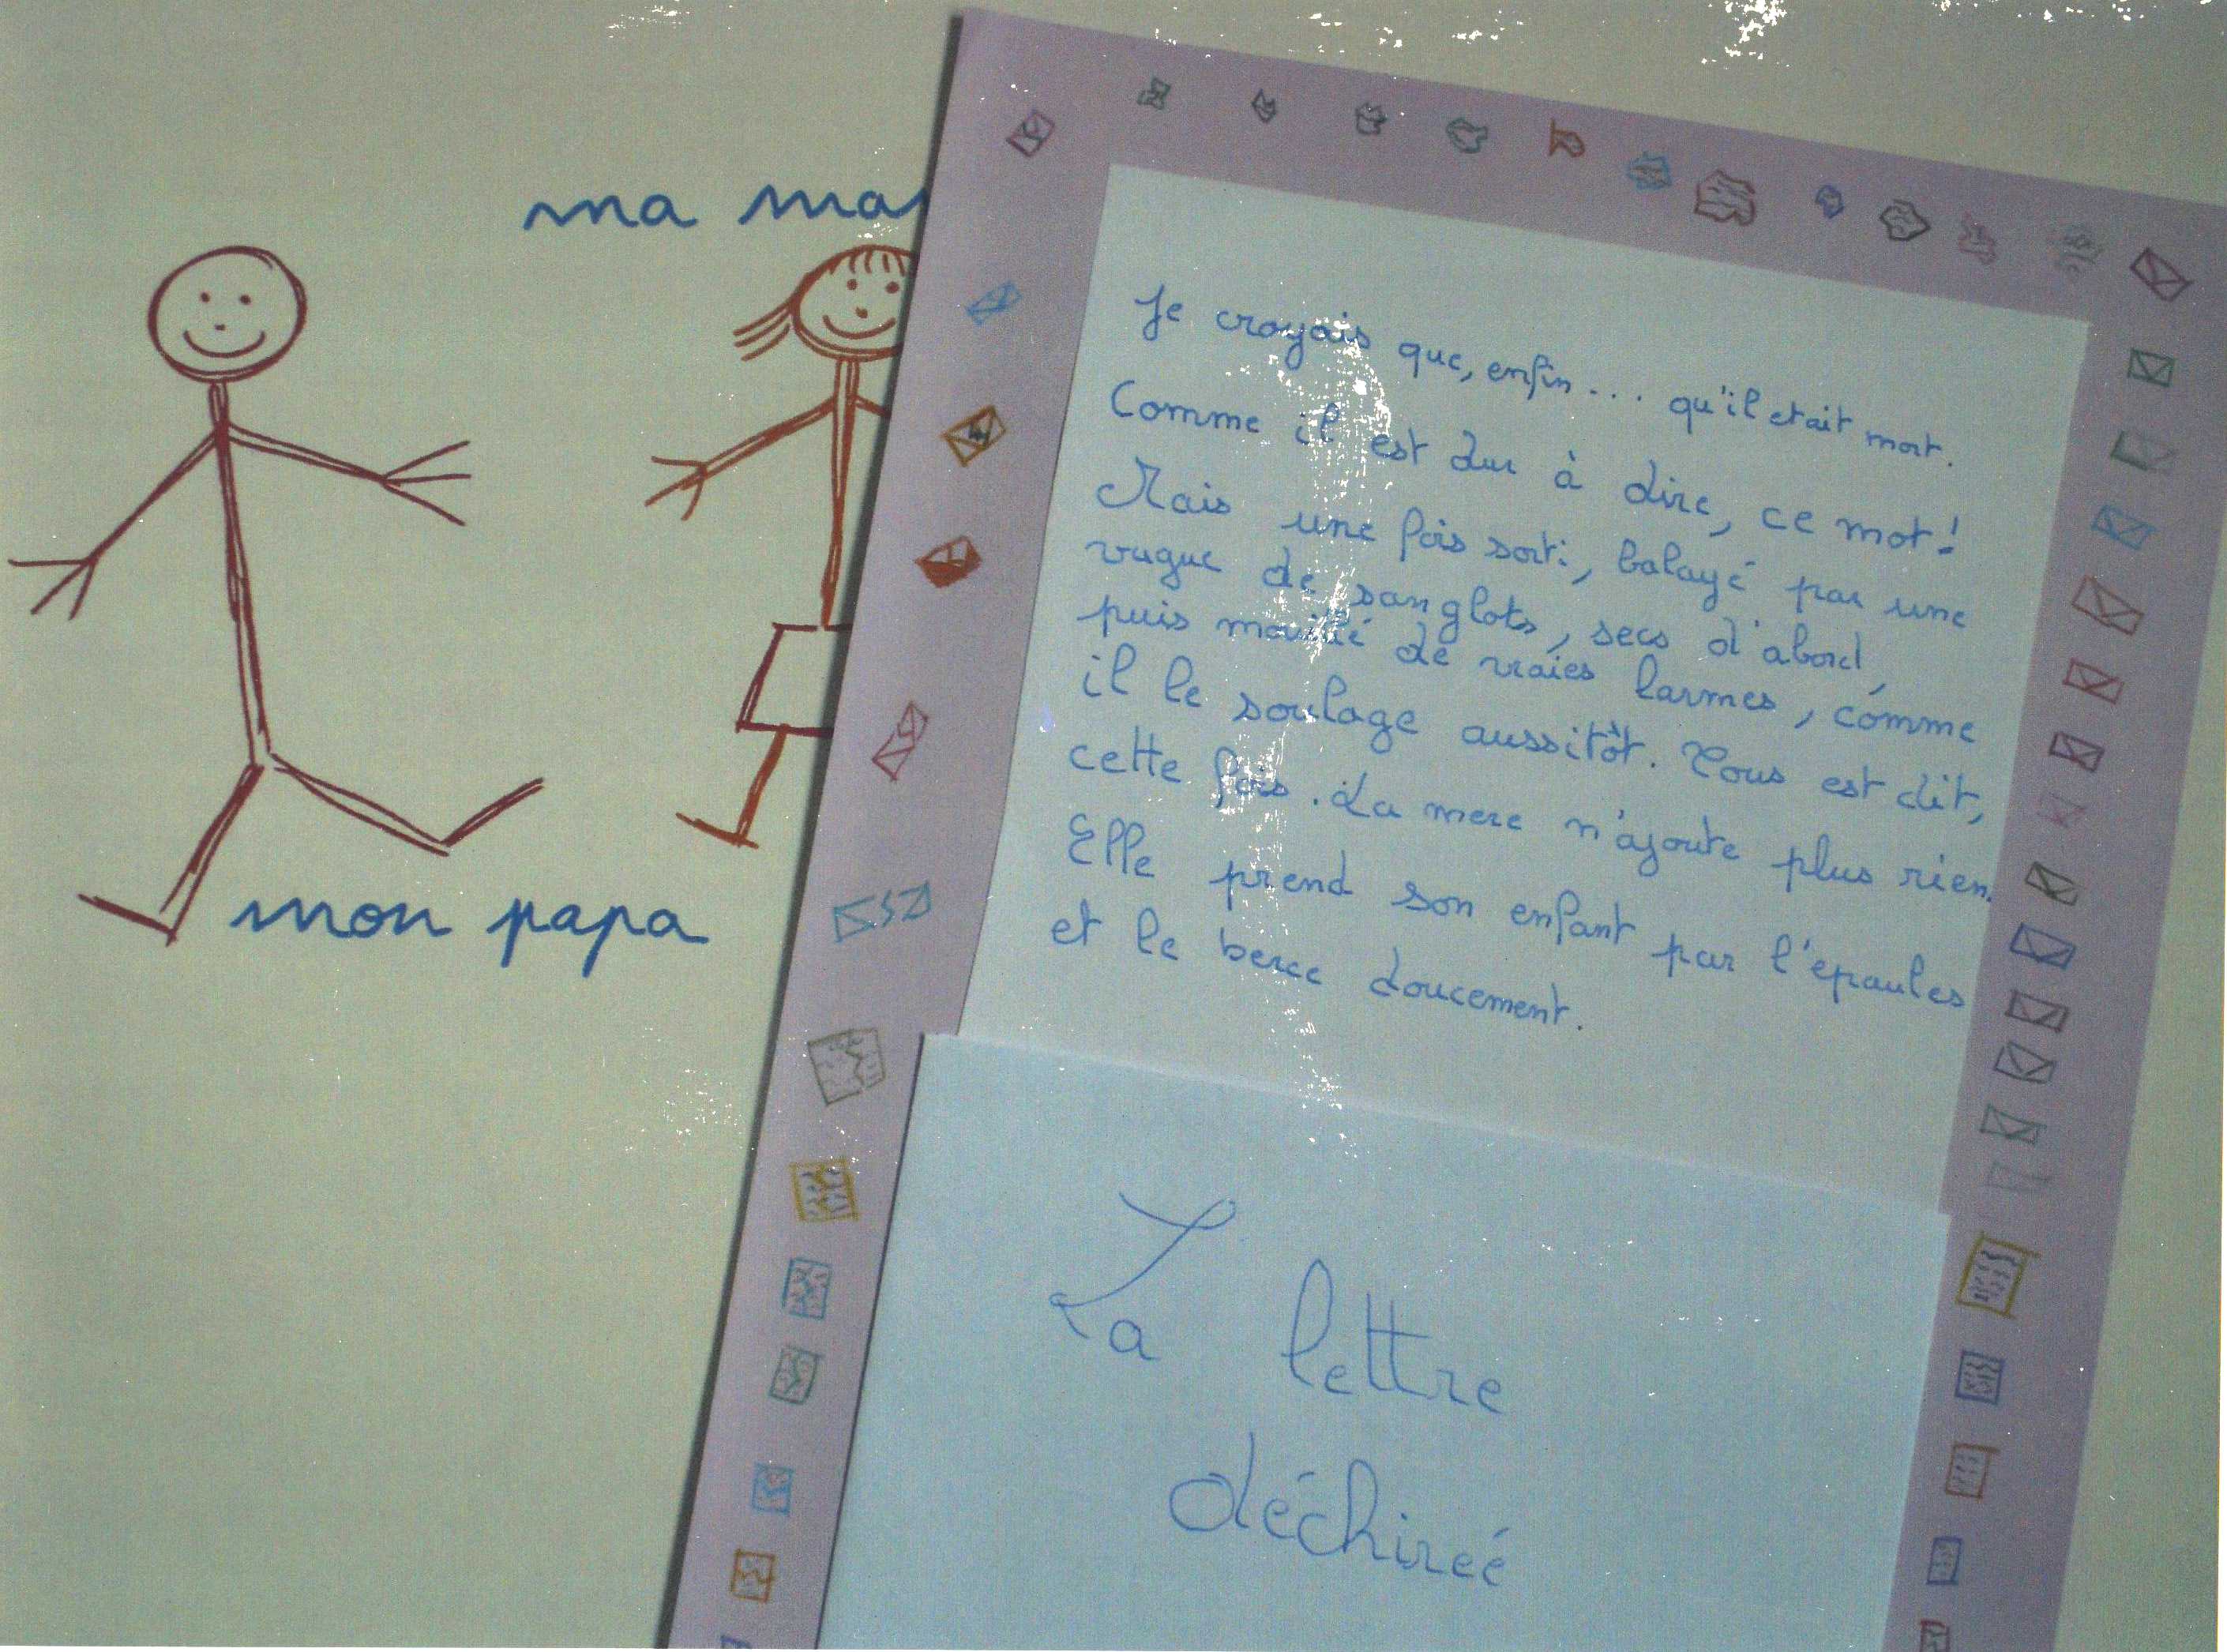 ma ma
mon papa
Je croyais que, enfin... qu'il etait mort.
Comme il est dur à dire, ce mot!
Mais une fois sorti, balayé par une
vague de sanglots, secs d'abord,
puis mouillé de vraies larmes, comme
il le soulage aussitôt. Tous est dit,
cette fois. La mere n'ajoute plus rien.
Elle prend son enfant par l'épaules
et le berce doucement.
La lettre
déchireé